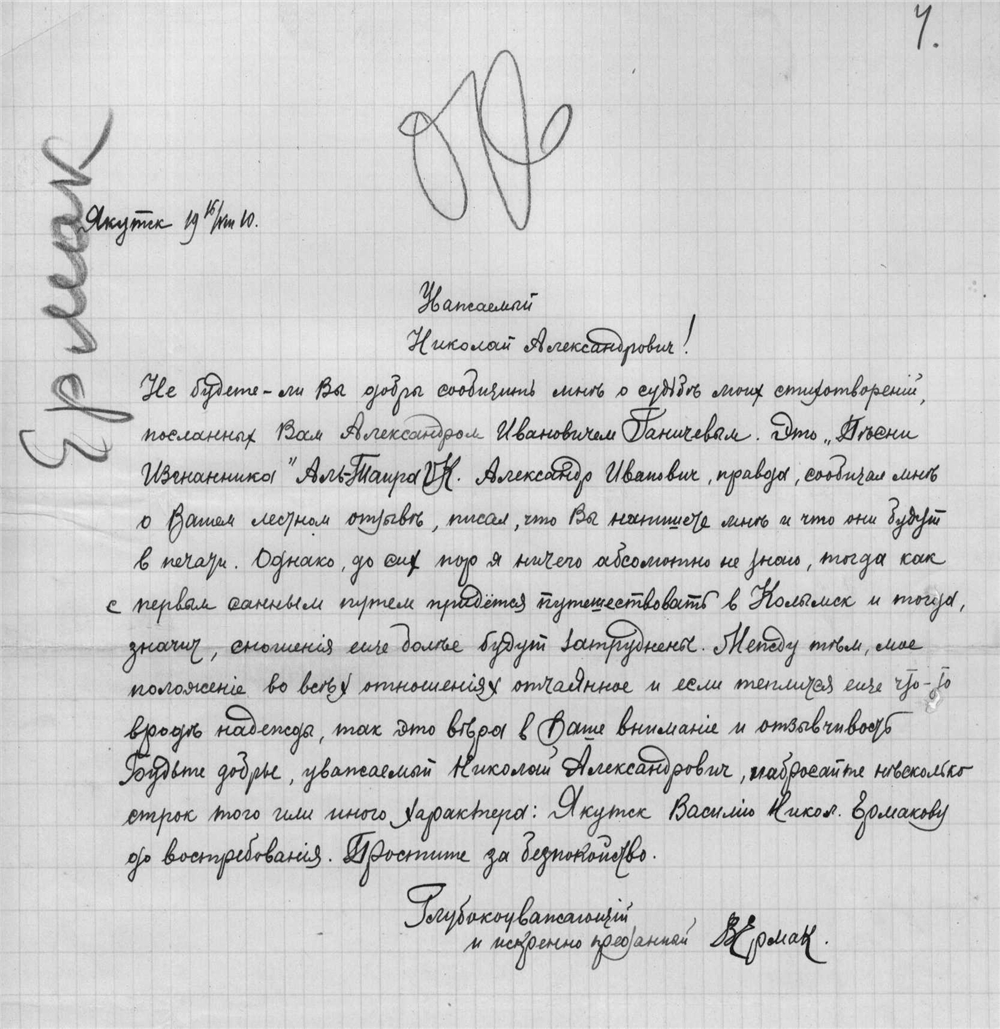 7.
Ермак
Якутск 19 15/VIII 10.
Уважаемый
Николай Александрович!
Не будете-ли Вы добры сообщить мнѣ о судьбѣ моих стихотвореній,
посланных Вам Александром Ивановичем Ганичевым. Это „Пѣсни
Изгнанника" Аль-Таира. Александр Иванович, правда, сообщал мнѣ
о Вашем лестном отзывѣ, писал, что Вы напишете мнѣ и что они будут
в печати. Однако, до сих пор я ничего абсолютно не знаю, тогда как
с первым санным путем придётся путешествовать в Колымск и тогда,
значит, сношенія еще болѣе будут затруднены. Между тѣм, мое
положеніе во всѣх отношеніях отчаянное и если теплится еще что-то
вродѣ надежды, так это вѣра в Ваше вниманіе и отзывчивость
Будьте добры, уважаемый Николай Александрович, набросайте нѣсколько
строк того или иного характера: Якутск Василію Никол. Ермакову
до востребованія. Простите за безпокойство.
Глубокоуважающій
и искренно преданный ВЕрмак.